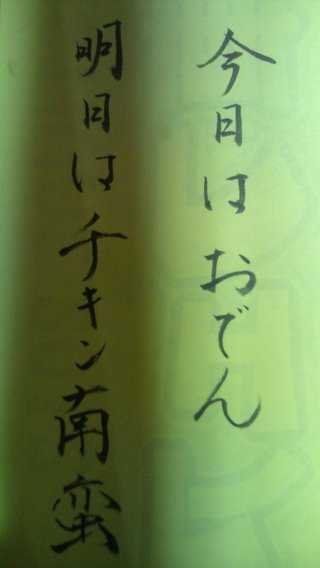 今日はおでん
明日はチキン南蛮